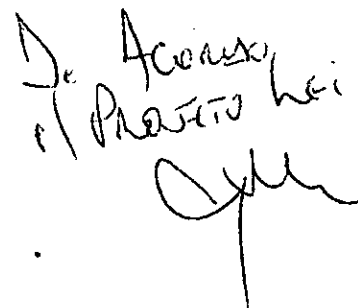 De Acordo
c/ Projeto Lei